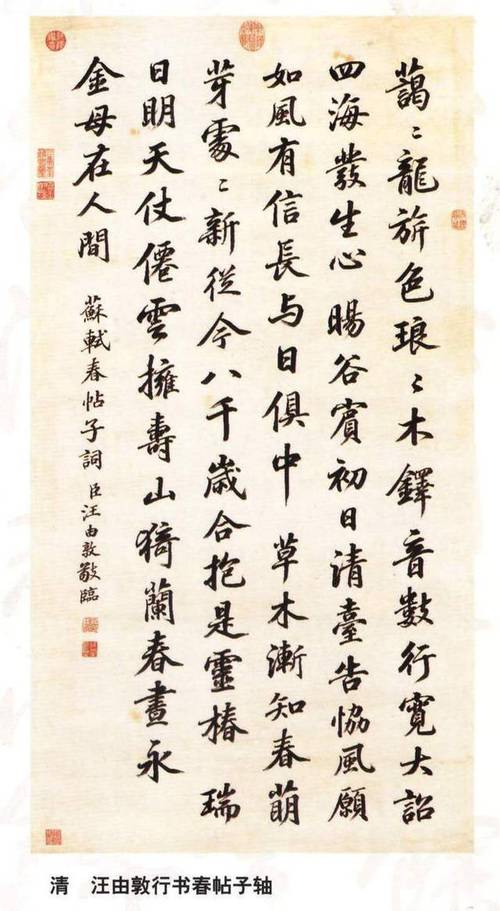 藹〻龍旂色琅〻木鐸音數行寬大詔
四海發生心暘谷賓初日清臺告協風願
如風有信長与日俱中草木漸知春萌
芽處〻新從今八千歲合抱是靈椿瑞
日明天仗僊雲擁壽山猗蘭春晝永
金母在人間
蘇軾春帖子詞 臣汪由敦敬臨
清 汪由敦行书春帖子轴